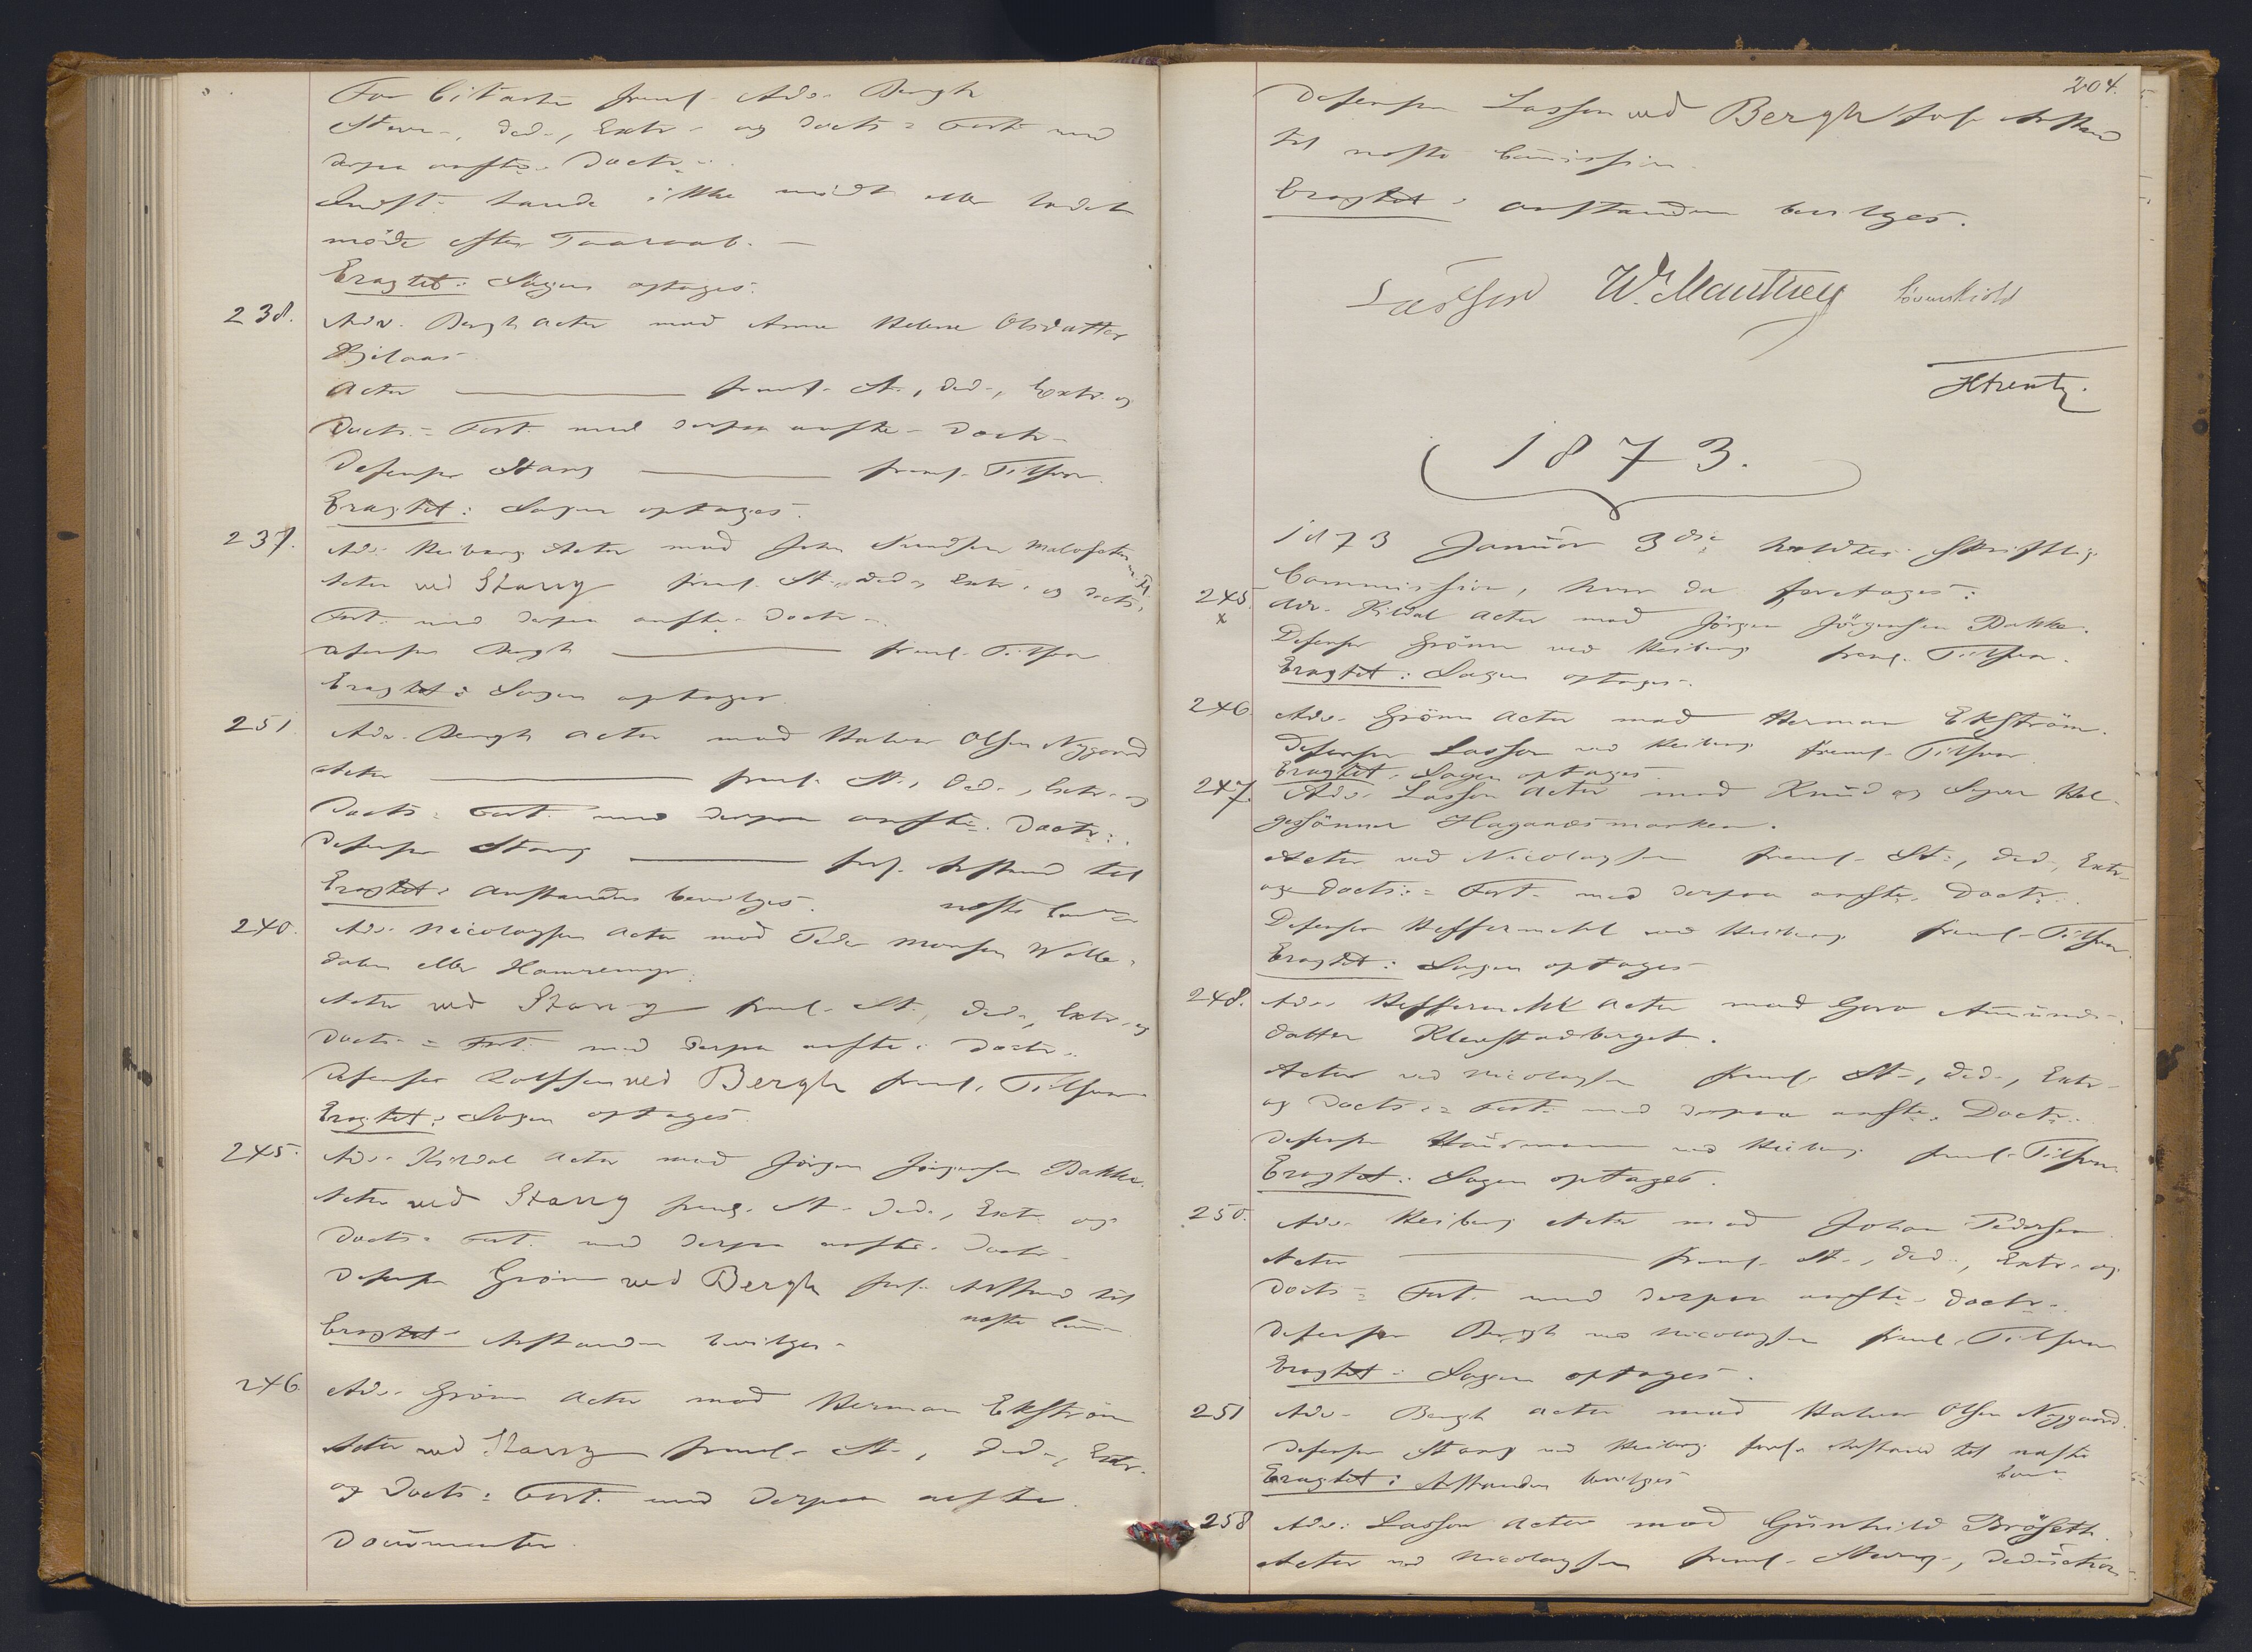 For Citanten freml. Adv. Bergh
Stevn., Ded., Extr. og Docts: Fort. med
derpaa anførte Doctr.
Indst. havde ikke mödt eller ladet
möde efter Paaraab. —
Eragtet: Sagen optages.
238. Adv. Bergh Actor mod Anne Helene Olsdatter
Actor ——— freml. St., Ded., Extr. og
Docts: Fort. med derpaa anførte Doctr.
Defensor Stang ——— freml. Tilsvar.
Eragtet: Sagen optages.
237. Adv. Heiberg Actor mod John Knudsen
Actor ved Stang freml. St., Ded., Extr. og Docts:
Fort. med derpaa anførte Doctr.
Defensor Bergh ——— freml. Tilsvar
Eragtet: Sagen optages.
251. Adv. Bergh Actor mod Halvor Olsen Nygaard
Actor ——— freml. St., Ded., Extr. og
Docts: Fort. med derpaa anførte Doctr.
Defensor Stang ——— forl. Anstand til
Eragtet: Anstanden bevilges. næste
240. Adv. Nicolaysen Actor mod Peder Monsen Wolle-
dalen eller Hamremyr.
Actor ved Stang freml. St., Ded., Extr. og
Docts: Fort. med derpaa anførte Doctr.
Defensor Rolfsen ved Bergh freml. Tilsvar
Eragtet: Sagen optages.
245. Adv. Kildal Actor mod Jörgen Jörgensen Bakke.
Actor ved Stang freml. St., Ded., Extr. og
Docts: Fort. med derpaa anførte Doctr.
Defensor Grönn ved Bergh forl. Anstand til
næste
Eragtet: Anstanden bevilges.
246. Adv. Grönn Actor mod Herman Ekström
Actor ved Stang freml. St., Ded., Extr.
og Docts: Fort. med derpaa anførte
Documenter.
204.
Defensor Lasson ved Bergh forl. Anstand
til næste Commission.
Eragtet: Anstanden bevilges.
Lasson W. Manthey Lövenskiold
1873.
1873 Januar 3die holdtes skriftlig
Commission, hvor da foretages:
245. Adv. Kildal Actor mod Jörgen Jörgensen Bakke.
x Defensor Grönn ved Heiberg freml. Tilsvar.
Eragtet: Sagen optages.
246. Adv. Grönn Actor mod Herman Ekström.
Defensor Lasson ved Heiberg freml. Tilsvar
Eragtet: Sagen optages.
247. Adv. Lasson Actor mod Knud og Hel-
gesönner Haganesmarken.
Actor ved Nicolaysen freml. St., Ded., Extr.
og Docts: Fort. med derpaa anførte Doctr.
Defensor Heffermehl ved Heiberg freml. Tilsvar.
Eragtet: Sagen optages
248. Adv. Heffermehl Actor mod Goro Amunds-
datter Klevstadberget.
Actor ved Nicolaysen freml. St., Ded., Extr.
og Docts: Fort. med derpaa anførte Doctr.
Defensor Hausmann ved Heiberg freml. Tilsvar.
Eragtet: Sagen optages.
250. Adv. Heiberg Actor mod Johan Pedersen.
Actor ——— freml. St., Ded., Extr. og
Docts: Fort. med derpaa anførte Doctr.
Defensor Bergh ved Nicolaysen freml. Tilsvar
Eragtet: Sagen optages.
251 Adv. Bergh Actor mod Halvor Olsen Nygaard.
Defensor Stang ved Heiberg forl. Anstand til næste
Eragtet: Anstanden bevilges
258 Adv. Lasson Actor mod Gunhild Bröseth.
Actor ved Nicolaysen freml. Stevng., Deduction-